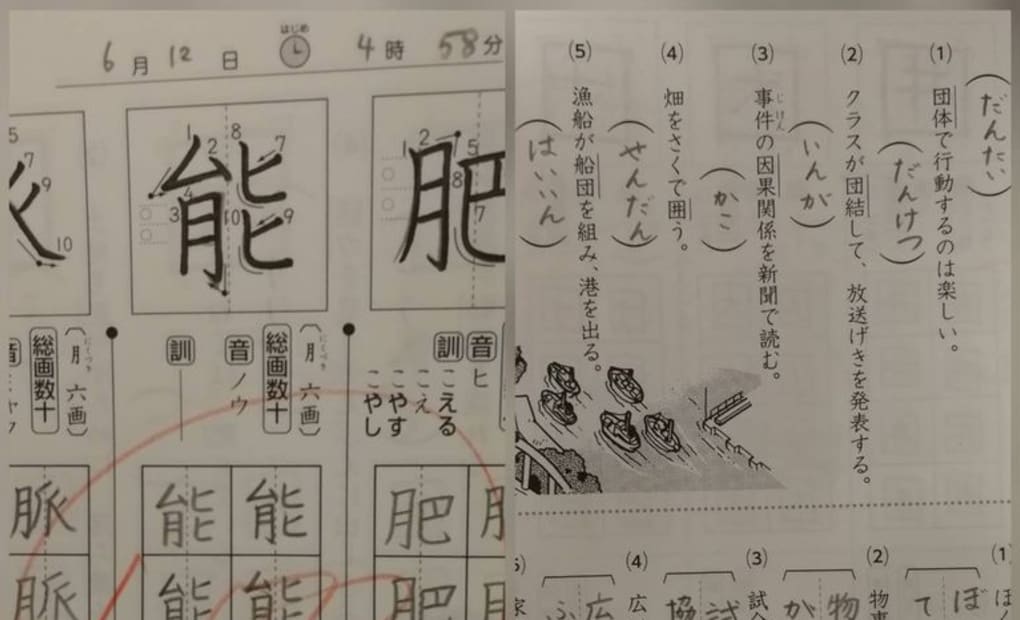 6月12日 はじめ 4時58分
5
7
9
10
能
1
2
3
4
8
7
9
10
肥
1
2
5
8
7
音
ヒ
訓
こえる
こえ
こやす
こやし
(月 六画)
にくづき
総画数十
音
ノウ
訓
(月 六画)
にくづき
総画数十
音
脈
脈
能
能
能
能
肥
肥
(1) 団体で行動するのは楽しい。
(だんたい)
(2) クラスが団結して、放送げきを発表する。
(だんけつ)
(3) 事件の因果関係を新聞で読む。
じけん
(いんが)
(4) 畑をさくで囲う。
(かこ)
(5) 漁船が船団を組み、港を出る。
(せんだん)
(はいいん)
(1)
ぼ
て
(2) 物事
物
が
(3) 試合
試
協
(4) 広
広
ふ